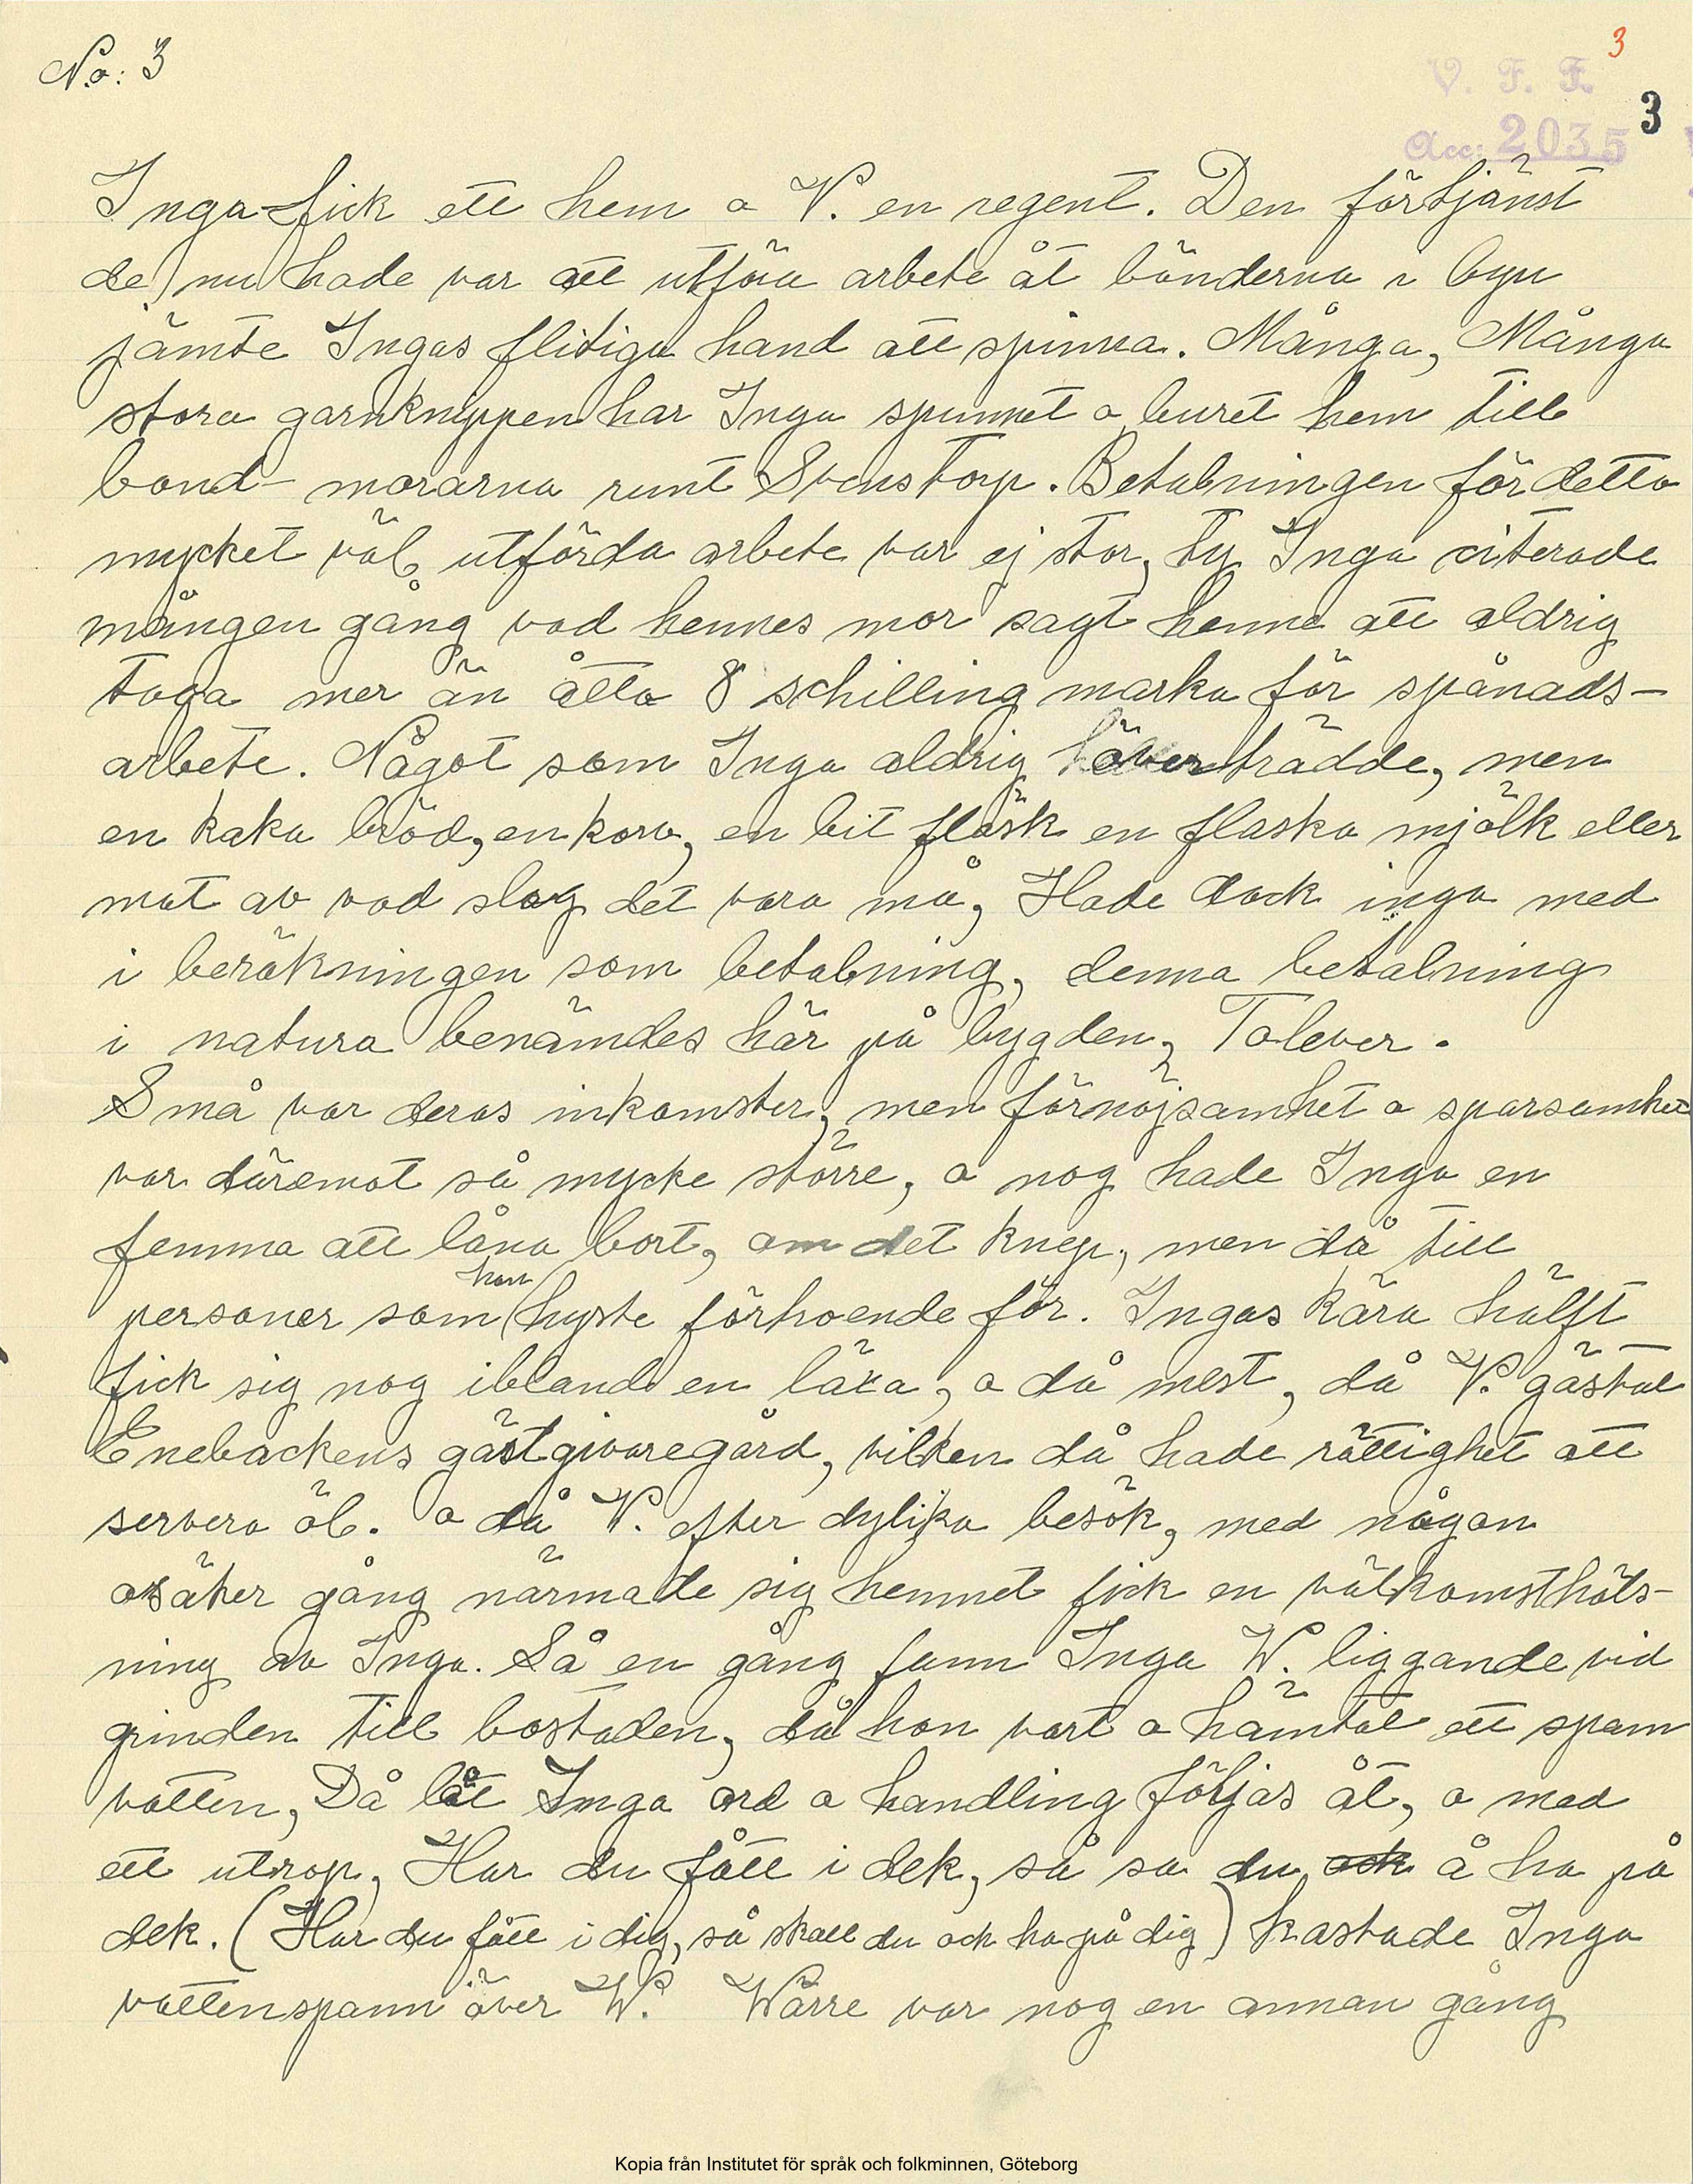 No: 3
3
V. F. F.
3
Acc: 2035
Inga fick ett hem o V. en regent. Den förtjänst
de nu hade var att utföra arbete åt bönderna i byn
jämte Ingas flitiga hand att spinna. Många, Många
stora garnknyppen har Inga spunnet o buret hem till
bond-morarna runt Svenstorp. Betalningen för detta
mycket väl utförda arbete var ej stor, ty Inga citerade
mången gång vad hennes mor sagt henne att aldrig
taga mer än åtta 8 schilling marka för spånads-
arbete. Något som Inga aldrig överträdde, men
en kaka bröd, en korv, en bit fläsk en flaska mjölk eller
mat av vad slag det vara må, Hade dock inga med
i beräkningen som betalning, denna betalning
i natura benämdes här på bygden, Tolever.
Små var deras inkomster, men förnöjsamhet o sparsamhet
var däremot så mycke större, o nog hade Inga en
femma att låna bort, om det knep, men då till
personer som hon hyste förtroende för. Ingas kära hälft
fick sig nog ibland en läxa, o då mest, då V. gästat
Enebackens gästgivaregård, vilken då hade rättighet att
servera öl. o då V. efter dylika besök, med någon
osäker gång närmade sig hemmet fick en välkomsthäls-
ning av Inga. Så en gång fann Inga W. liggande vid
grinden till bostaden, då hon vart o hämtat ett spann
vatten, Då lät Inga ord o handling följas åt, o med
ett utrop, Har du fått i dek, så sa du ock å ha på
dek. (Har du fått i dig, så skall du och ha på dig) kastade Inga
vattenspann över W. Wärre var nog en annan gång
Kopia från Institutet för språk och folkminnen, Göteborg